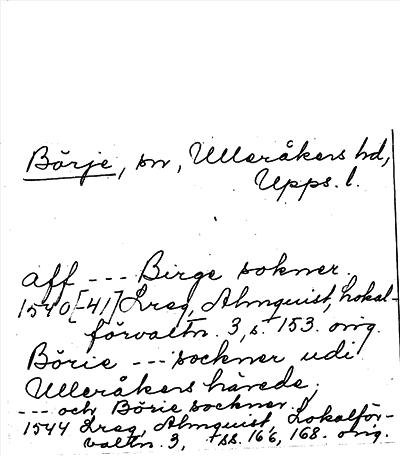 Börje, sn, Ulleråkers hd,
Upps. l.
aff --- Birge sokner.
1540[-41] Lreg, Almquist, Lokal-
förvaltn. 3, s. 153. orig.
Börie --- sockner udi
Ulleråkers härede,
--- och Börie sockner.
1544 Lreg, Almquist, Lokalför-
valtn. 3, ss. 166, 168. orig.